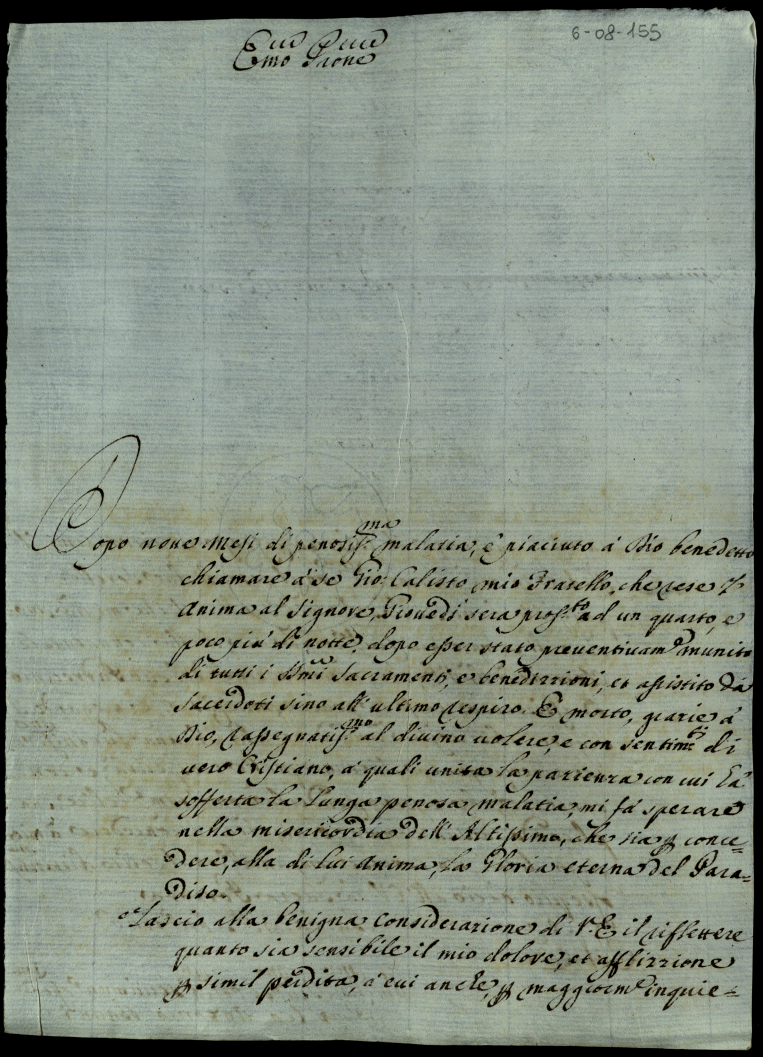 6-08-155
Ecc.mo Prone
Dopo noue mesi di penosis.ma malatia, è piaciuto à Dio benedetto
chiamare à se Gio: Calisto mio Fratello, che rese l'
Anima al Signore, Giouedì sera pros.to ad un quarto, e
poco più di notte, dopo esser stato preventivam.e munito
di tutti i SSmi Sacramenti, e benedizzioni, et assistito dà
Sacerdoti sino all'ultimo respiro. È morto, grazie à
Dio, rassegnatis.mo al divino volere, e con sentim.ti di
vero Cristiano, à quali unita la pazienza con cui hà
sofferta la lunga penosa malatia, mi fà sperare
nella misericordia dell'Altissimo, che sia p conce-
dere, alla di lui Anima, la Gloria eterna del Para-
diso.
Lascio alla benigna considerazione di V.E il riflettere
quanto sia sensibile il mio dolore, et afflizzione
p simil perdita, à cui anche, p maggiorm.e inquie-